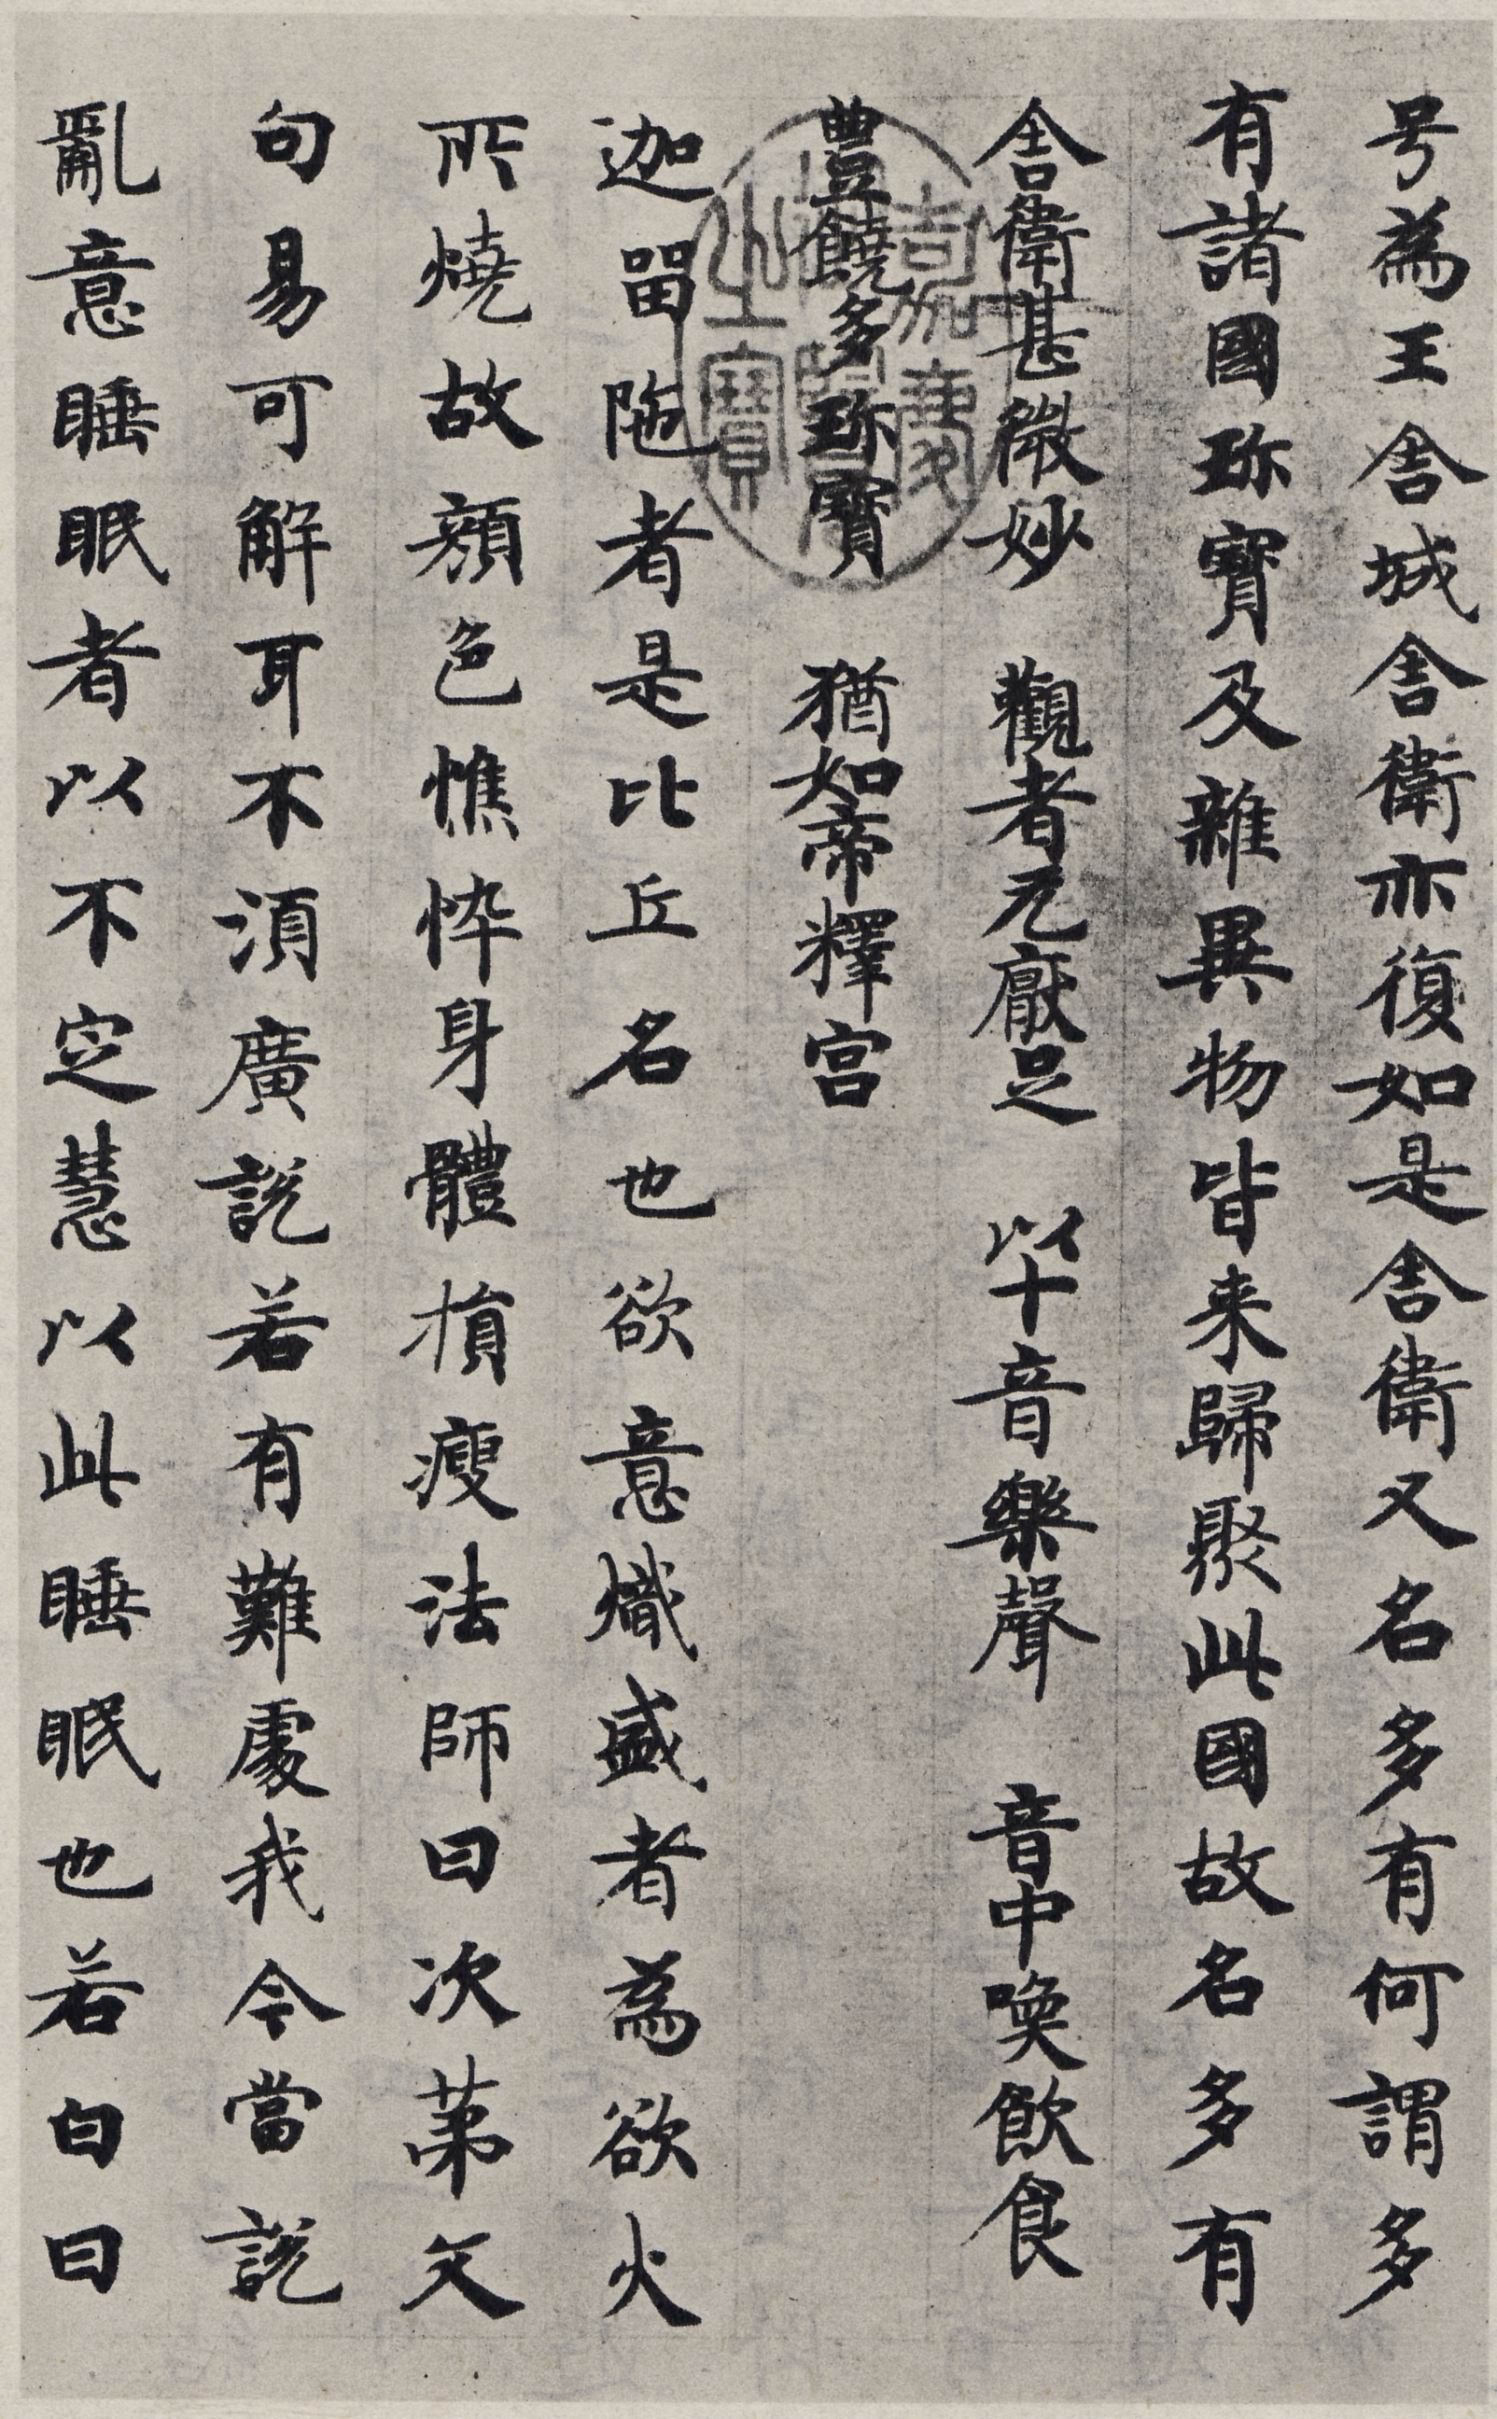 号為王舎城舎衛亦復如是舎衛又名多有何謂多
有諸國珎寳及雜異物皆来歸聚此國故名多有
舎衛甚微妙　觀者无厭足　以十音樂聲　音中喚飲食
豊饒多珎寳　猶如帝釋宫
迦留陁者是比丘名也欲意熾盛者為欲火
所燒故顔色憔悴身體損瘦法師曰次苐文
句易可解耳不須廣説若有難處我今當説
亂意睡眠者以不定慧以此睡眠也若白日